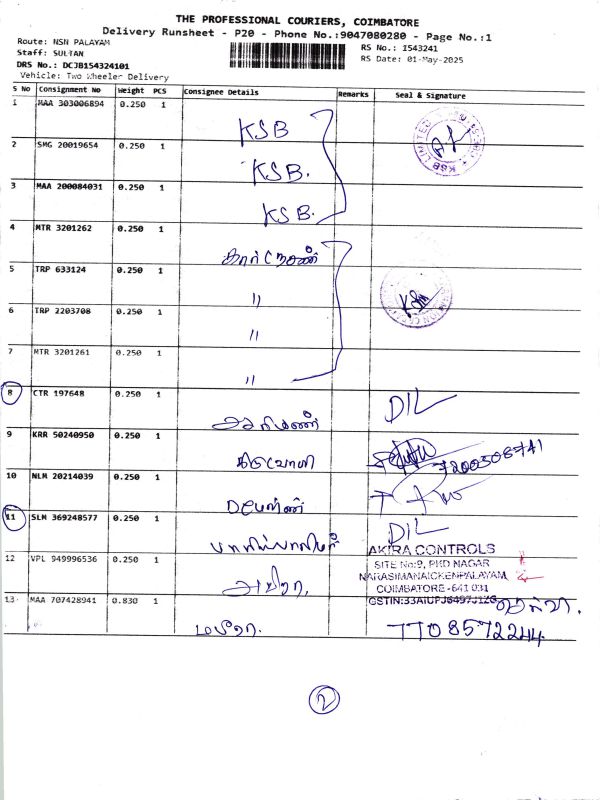 THE PROFESSIONAL COURIERS, COIMBATORE
Delivery Runsheet - P20 - Phone No.:9047080280 - Page No.:1
Route: NSN PALAYAM
Staff: SULTAN
DRS No.: DCJB154324101
Vehicle: Two Wheeler Delivery
RS No.: I543241
RS Date: 01-May-2025
S No Consignment No Weight PCS Consignee Details Remarks Seal & Signature
1 MAA 303006894 0.250 1 KSB
KSB LIMITED
2 SMG 20019654 0.250 1 KSB.
3 MAA 200084031 0.250 1 KSB.
4 MTR 3201262 0.250 1
5 TRP 633124 0.250 1 "
6 TRP 2203708 0.250 1 "
7 MTR 3201261 0.250 1 "
8 CTR 197648 0.250 1 DIL
9 KRR 50240950 0.250 1 7200508741
10 NLM 20214039 0.250 1
11 SLM 369248577 0.250 1 DIL
12 VPL 949996536 0.250 1 அகிரா.
AKIRA CONTROLS
SITE No:9, PHD NAGAR
NARASIMANAICKENPALAYAM
COIMBATORE - 641 031
13 MAA 707428941 0.830 1
7708572244
2